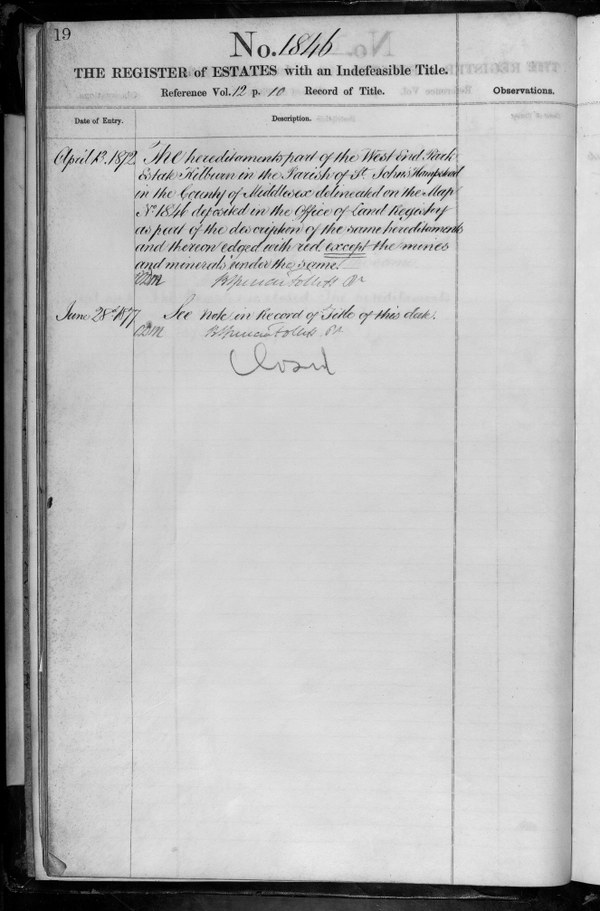 19
No. 1846
THE REGISTER of ESTATES with an Indefeasible Title.
Reference Vol. 12 p. 10 Record of Title.
Observations.
Date of Entry.
Description.
April 13. 1872. The hereditaments part of the West End Park
Estate Kilburn in the Parish of St. Johns Hampstead
in the County of Middlesex delineated on the Map
No 1846 deposited in the Office of Land Registry
as part of the description of the same hereditaments
and thereon edged with red except the mines
and minerals under the same.
Follett
June 28th 1877 See note in Record of Title of this date.
Follett
Closed